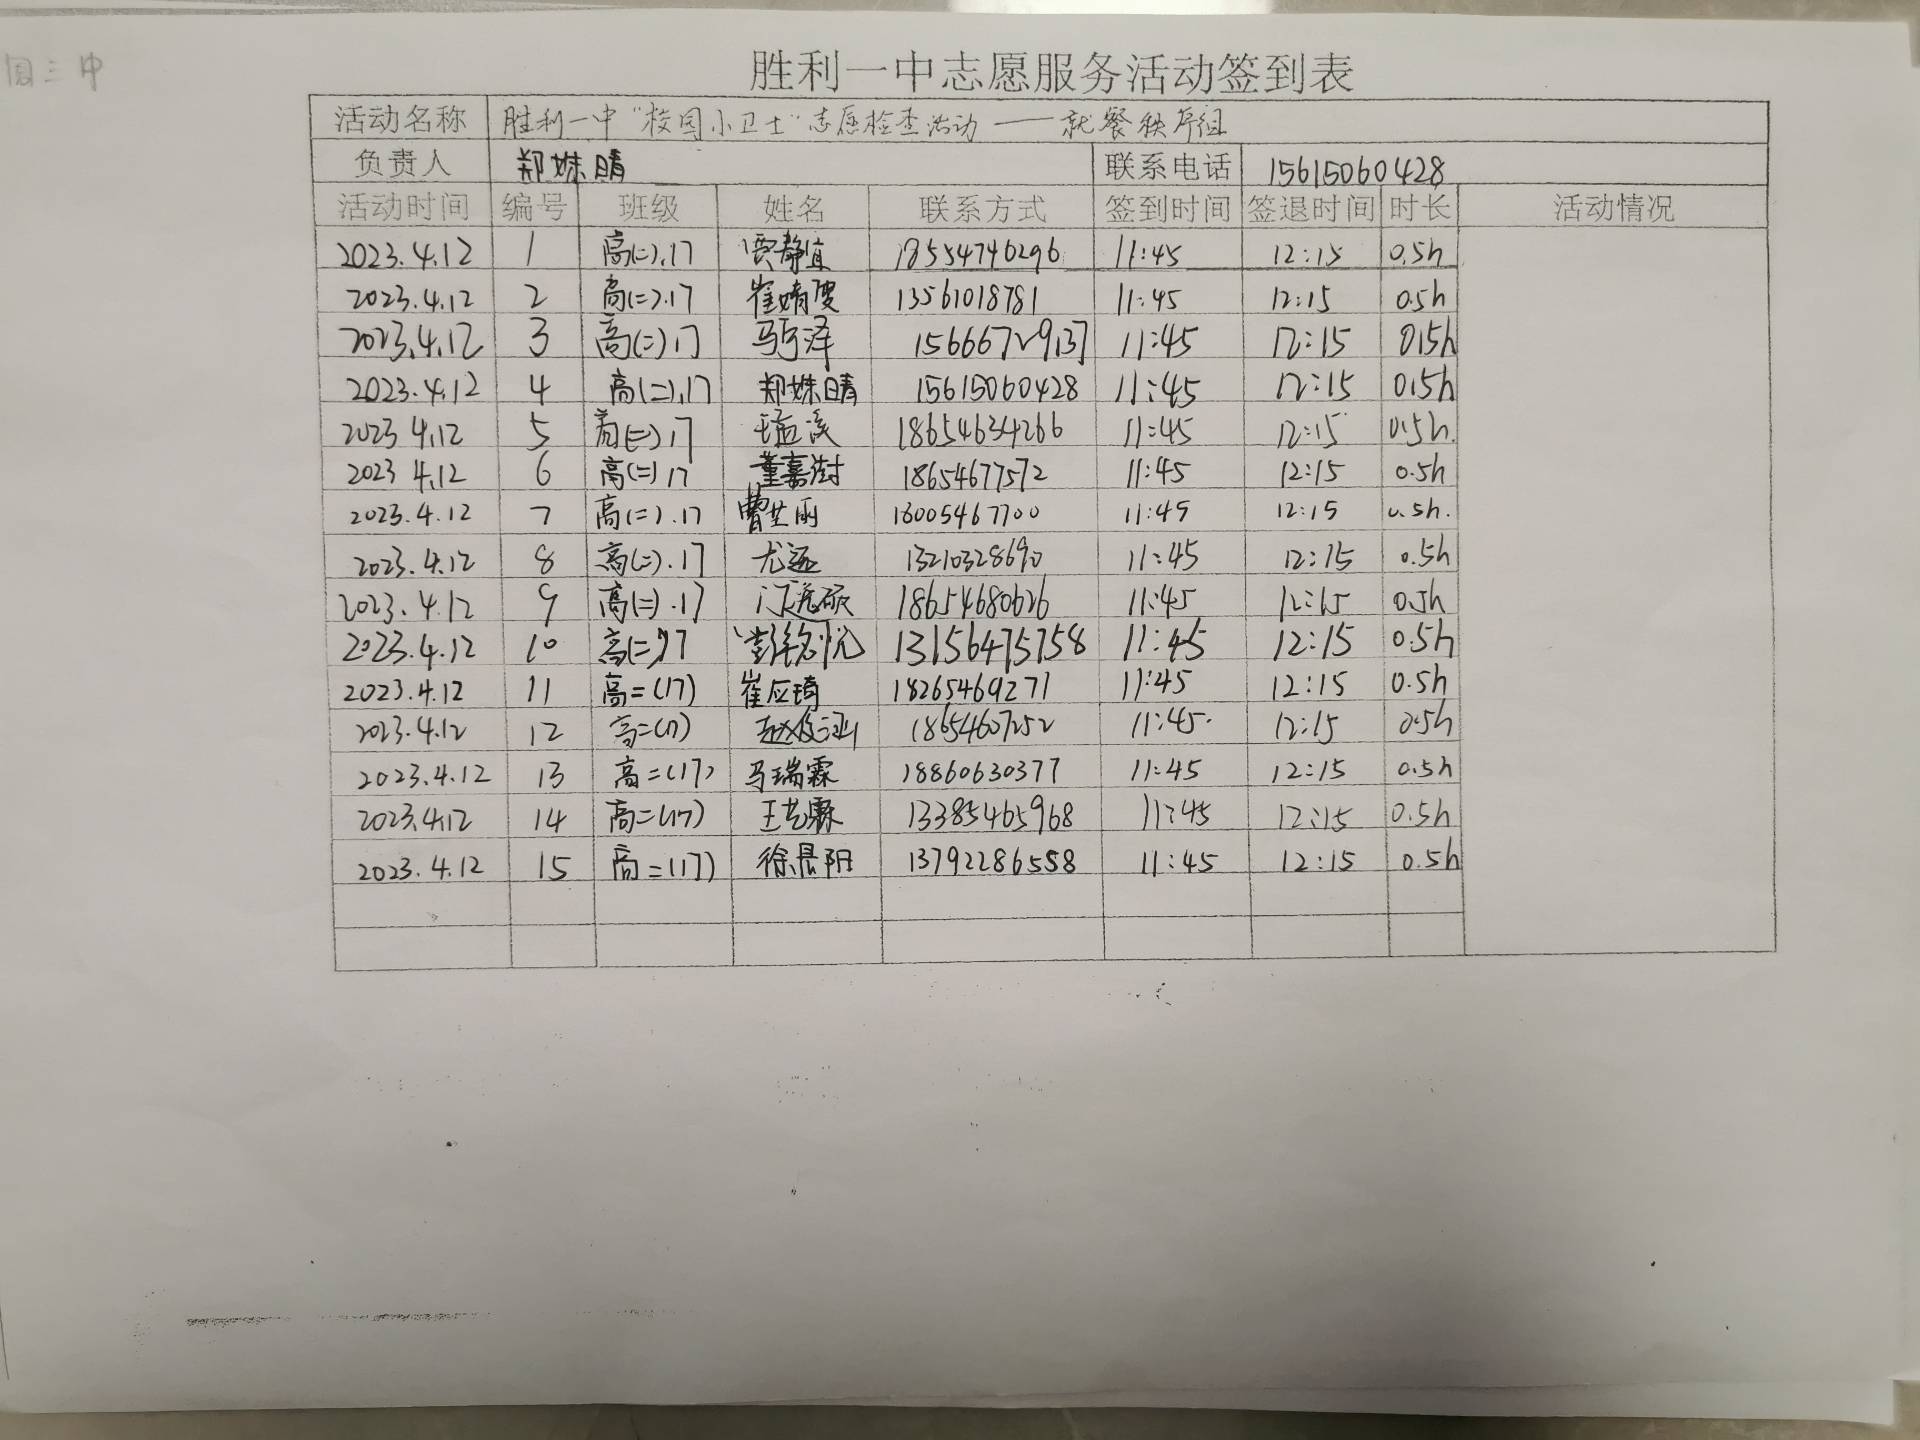 周三中
胜利一中志愿服务活动签到表
活动名称 胜利一中“校园小卫士”志愿检查活动——就餐秩序组
负责人 郑姝晴 联系电话 15615060428
活动时间 编号 班级 姓名 联系方式 签到时间 签退时间 时长 活动情况
2023.4.12 1 高(二).17 贾静宜 18554746296 11:45 12:15 0.5h
2023.4.12 2 高(二).17 崔婧雯 13561018781 11:45 12:15 0.5h
2023.4.12 3 高(二)17 15666729137 11:45 12:15 0.5h
2023.4.12 4 高(二).17 郑姝晴 15615060428 11:45 12:15 0.5h
2023 4.12 5 高(二).17 18654634266 11:45 12:15 0.5h.
2023 4.12 6 高(二)17 董嘉澍 18654677572 11:45 12:15 0.5h
2023.4.12 7 高(二).17 曹芷雨 18005467700 11:45 12:15 0.5h.
2023.4.12 8 高(二).17 尤远 13210328690 11:45 12:15 0.5h
2023.4.12 9 高(二).17 18654680626 11:45 12:15 0.5h
2023.4.12 10 高(二)17 彭铭悦 13156475758 11:45 12:15 0.5h
2023.4.12 11 高二(17) 崔应琦 18265469271 11:45 12:15 0.5h
2023.4.12 12 高二(17) 18654607252 11:45. 12:15 0.5h
2023.4.12 13 高二(17) 马瑞霖 18860630377 11:45 12:15 0.5h
2023.4.12 14 高二(17) 王艺霖 13385465968 11:45 12:15 0.5h
2023.4.12 15 高二(17) 徐晨阳 13792286558 11:45 12:15 0.5h